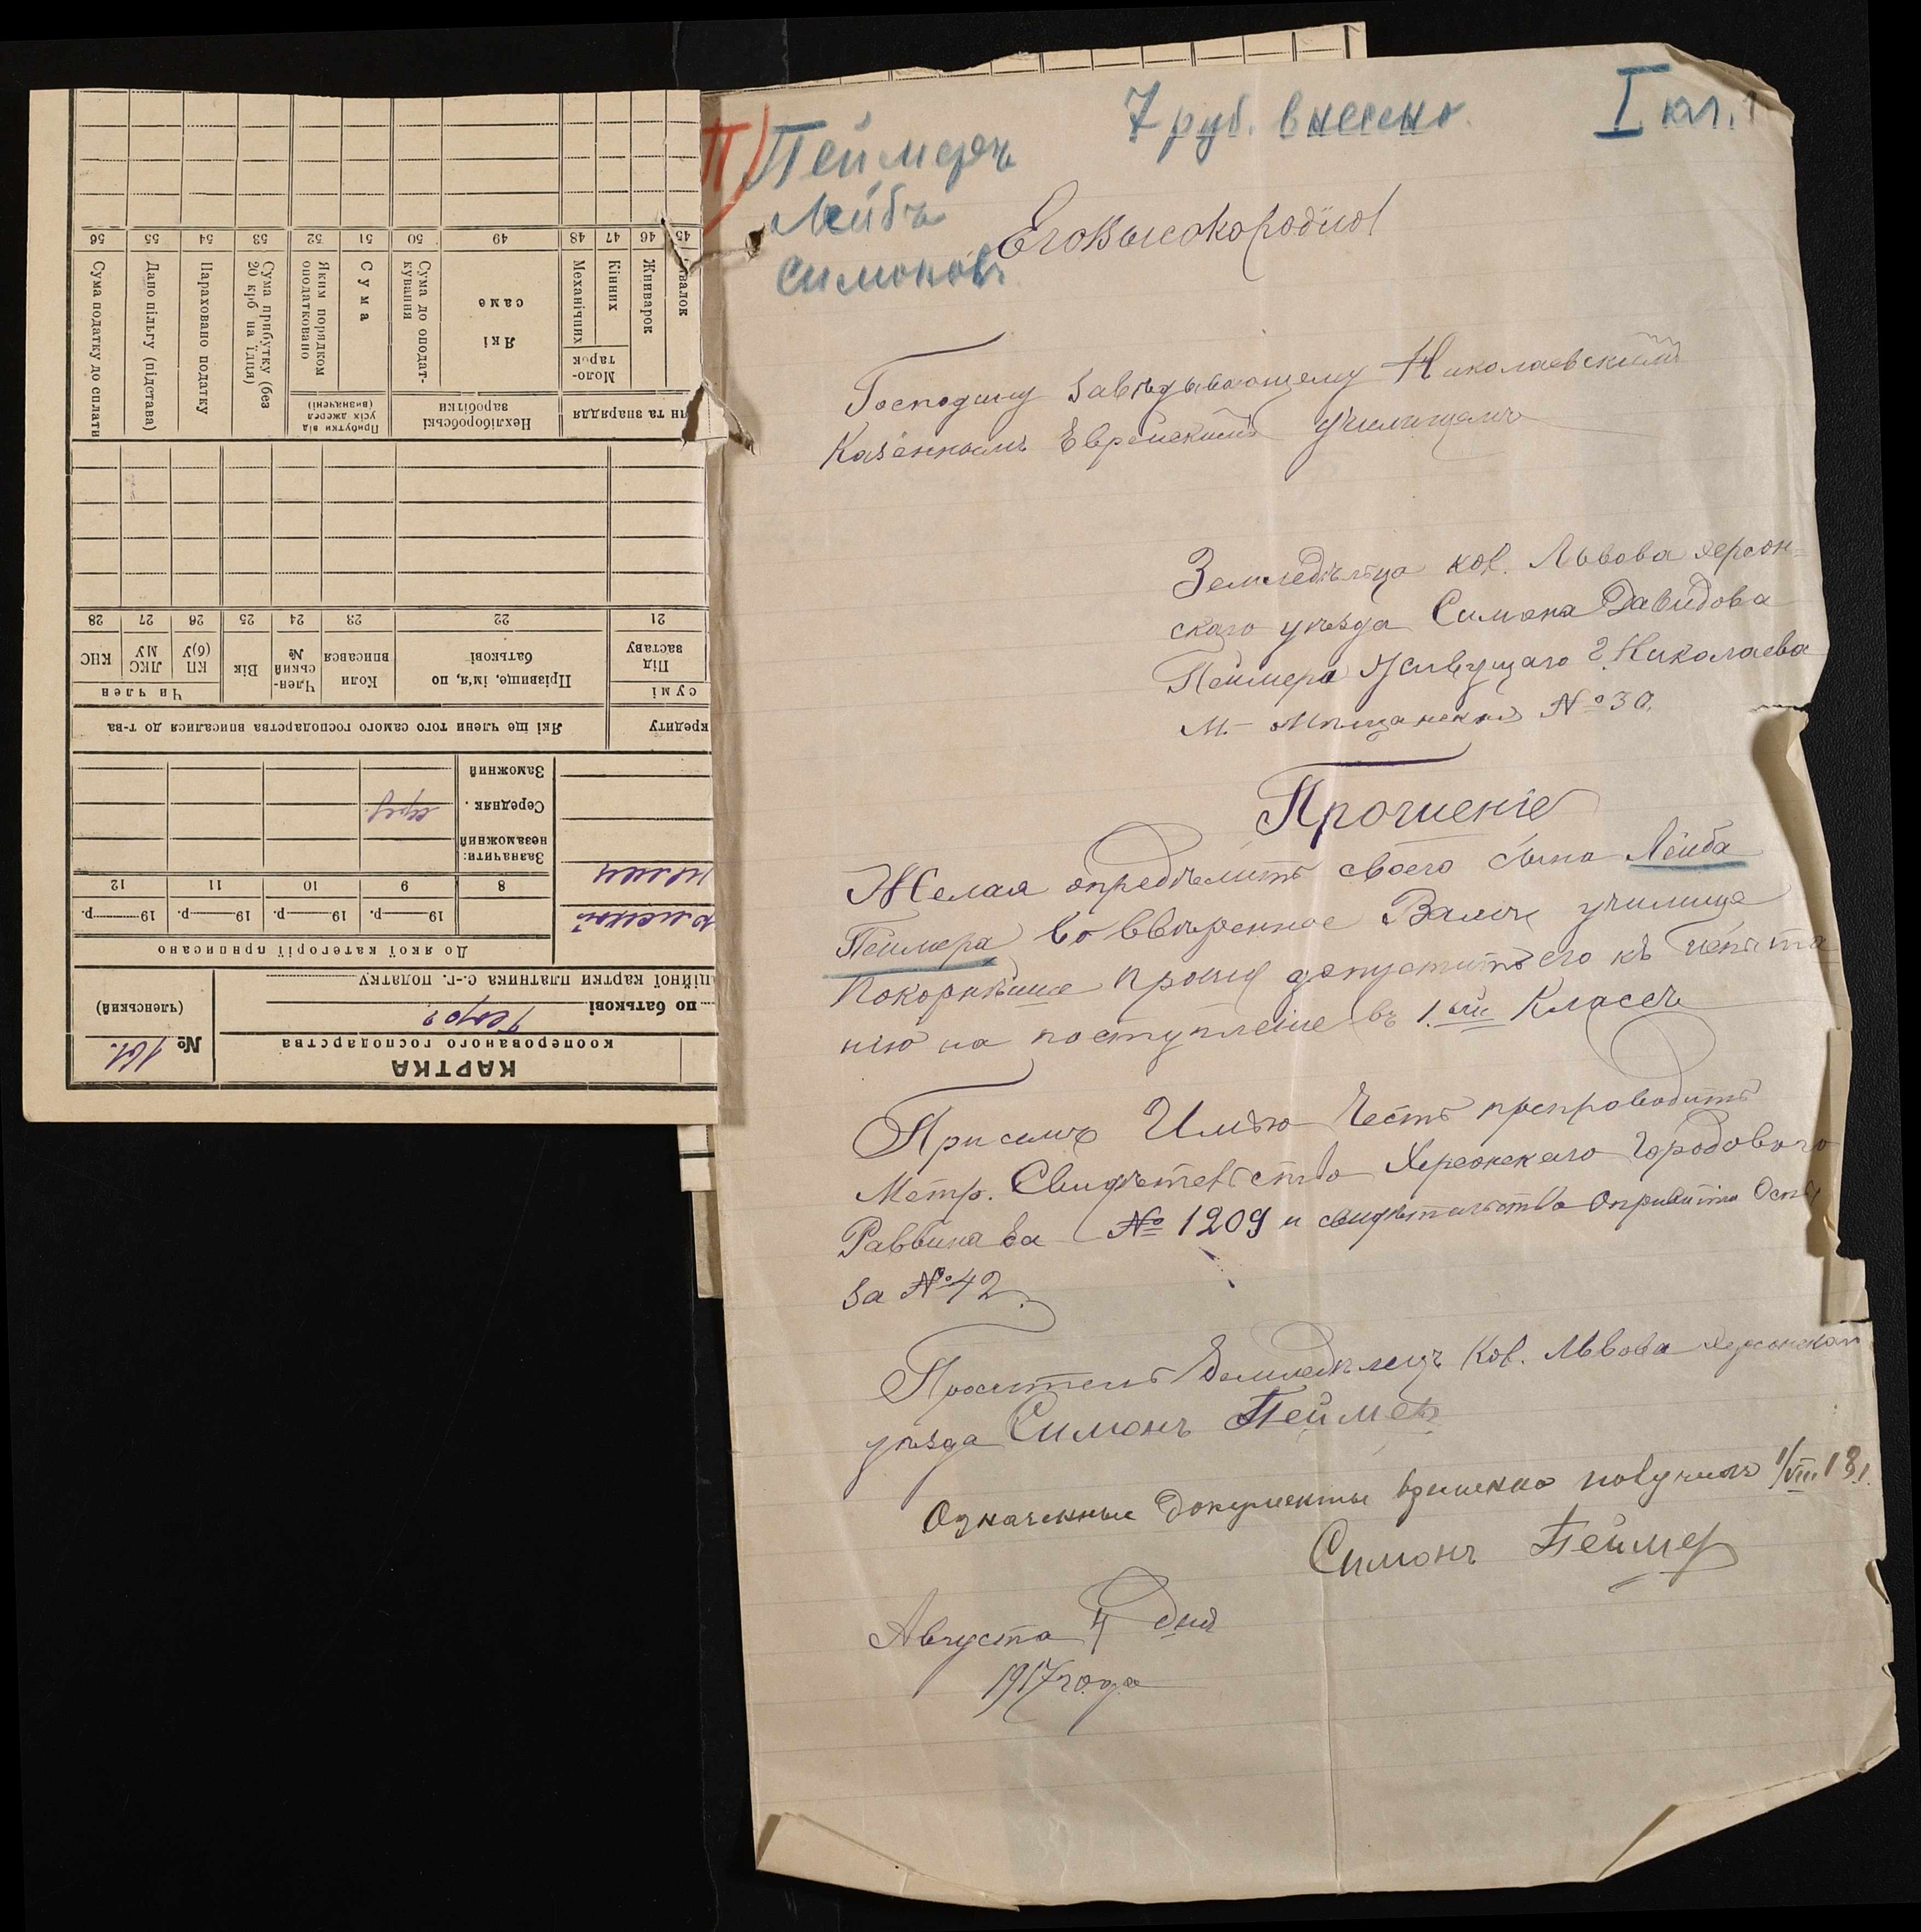 7 руб. внесено.
I кл.
П)
Пеймеръ
Лейбъ
Симоновъ
Его Высокородію
Господину Завѣдывающему Николаевскимъ
Казеннымъ Еврейскимъ училищемъ
Земледѣльца кол. Львова Херсон-
скаго уѣзда Симона Давидова
Пеймера Живущаго г. Николаева
М.-Мѣщанская № 30.
Прошеніе
Желая опредѣлить своего сына Лейба
Пеймера во ввѣренное Вамъ училище
Покорнѣйше прошу допустить его къ
нію на поступленіе въ 1.ый Классъ
При семъ Имѣю Честь препроводить
Метр. Свидѣтельство Херсонскаго Городового
Раввина За № 1209 и свидѣтельство Оспы
за № 42.
Проситель Земледѣлецъ Кол. Львова Херсонскаго
уѣзда Симонъ Пеймер
Означенные документы временно получилъ 1/VIII 18.
Симонъ Пеймер
Августа 4 дня
1917 года
КАРТКА
кооперованого господарства
№ 161.
(членський)
по батькові
ційної картки платника с.-г. податку
До якої категорії приписано
19 р. 19 р. 19 р. 19 р.
8 9 10 11 12
Зазначити:
незаможний
Середняк.
серед.
Заможний
кредиту
Які ще члени того самого господарства вписалися до т-ва
сумі
Під заставу
Прізвище, ім'я, по батькові
Коли вписався
Член-ський №
Вік
Чи член
КП (б)У
ЛКС МУ
КНС
21 22 23 24 25 26 27 28
ин та знаряддя
Нехліборобські заробітки
Прибутки від усіх джерел (визначені)
Моло-тарок
валок
Жниварок
Кінних
Механічних
Які саме
Сума до оподат-кування
Сума
Яким порядком оподатковано
Сума прибутку (без 20 крб на їдця)
Нараховано податку
Дано пільгу (підстава)
Сума податку до сплати
45 46 47 48 49 50 51 52 53 54 55 56